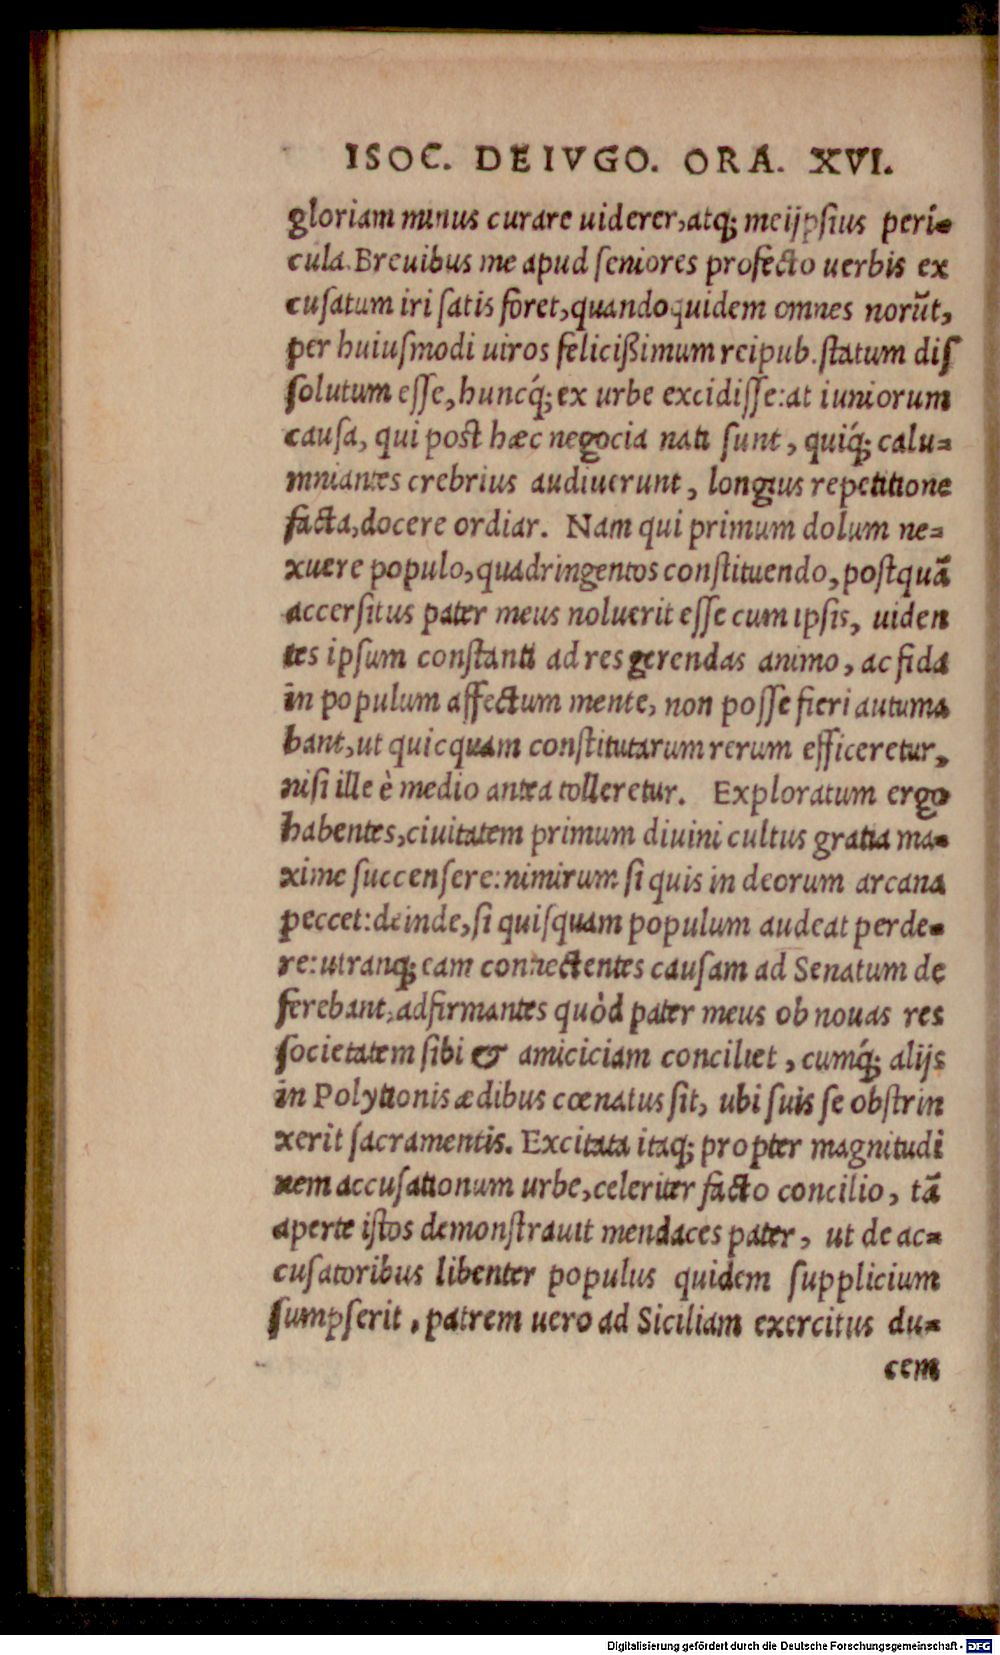 ISOC. DE IVGO. ORA. XVI.
gloriam minus curare uiderer, atq; meijpſius peri-
cula. Breuibus me apud ſeniores profecto uerbis ex
cuſatum iri ſatis foret, quandoquidem omnes norũt,
per huiuſmodi uiros feliciſſimum reipub. ſtatum diſ
ſolutum eſſe, huncq́; ex urbe excidiſſe: at iuniorum
cauſa, qui poſt hæc negocia nati ſunt, quiq́; calu-
mniantes crebrius audiuerunt, longius repetitione
facta, docere ordiar. Nam qui primum dolum ne-
xuere populo, quadringentos conſtituendo, poſtquã
accerſitus pater meus noluerit eſſe cum ipſis, uiden
tes ipſum conſtanti ad res gerendas animo, ac fida
in populum affectum mente, non poſſe fieri autuma
bant, ut quicquam conſtitutarum rerum efficeretur,
niſi ille è medio antea tolleretur. Exploratum ergo
habentes, ciuitatem primum diuini cultus gratia ma-
xime ſuccenſere: nimirum ſi quis in deorum arcana
peccet: deinde, ſi quiſquam populum audeat perde-
re: utranq; eam connectentes cauſam ad Senatum de
ferebant, adfirmantes quòd pater meus ob nouas res
ſocietatem ſibi & amiciciam conciliet, cumq́; alijs
in Polytionis ædibus cœnatus ſit, ubi ſuis ſe obſtrin
xerit ſacramentis. Excitata itaq; propter magnitudi
nem accuſationum urbe, celeriter facto concilio, tã
aperte iſtos demonſtrauit mendaces pater, ut de ac-
cuſatoribus libenter populus quidem ſupplicium
ſumpſerit, patrem uero ad Siciliam exercitus du-
cem
Digitalisierung gefördert durch die Deutsche Forschungsgemeinschaft - DFG